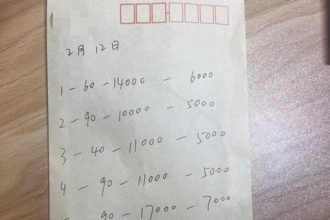 2月12日
1-60-14000-6000
2-90-10000-5000
3-40-11000-5000
4-90-11000-5000
90-17000-7000